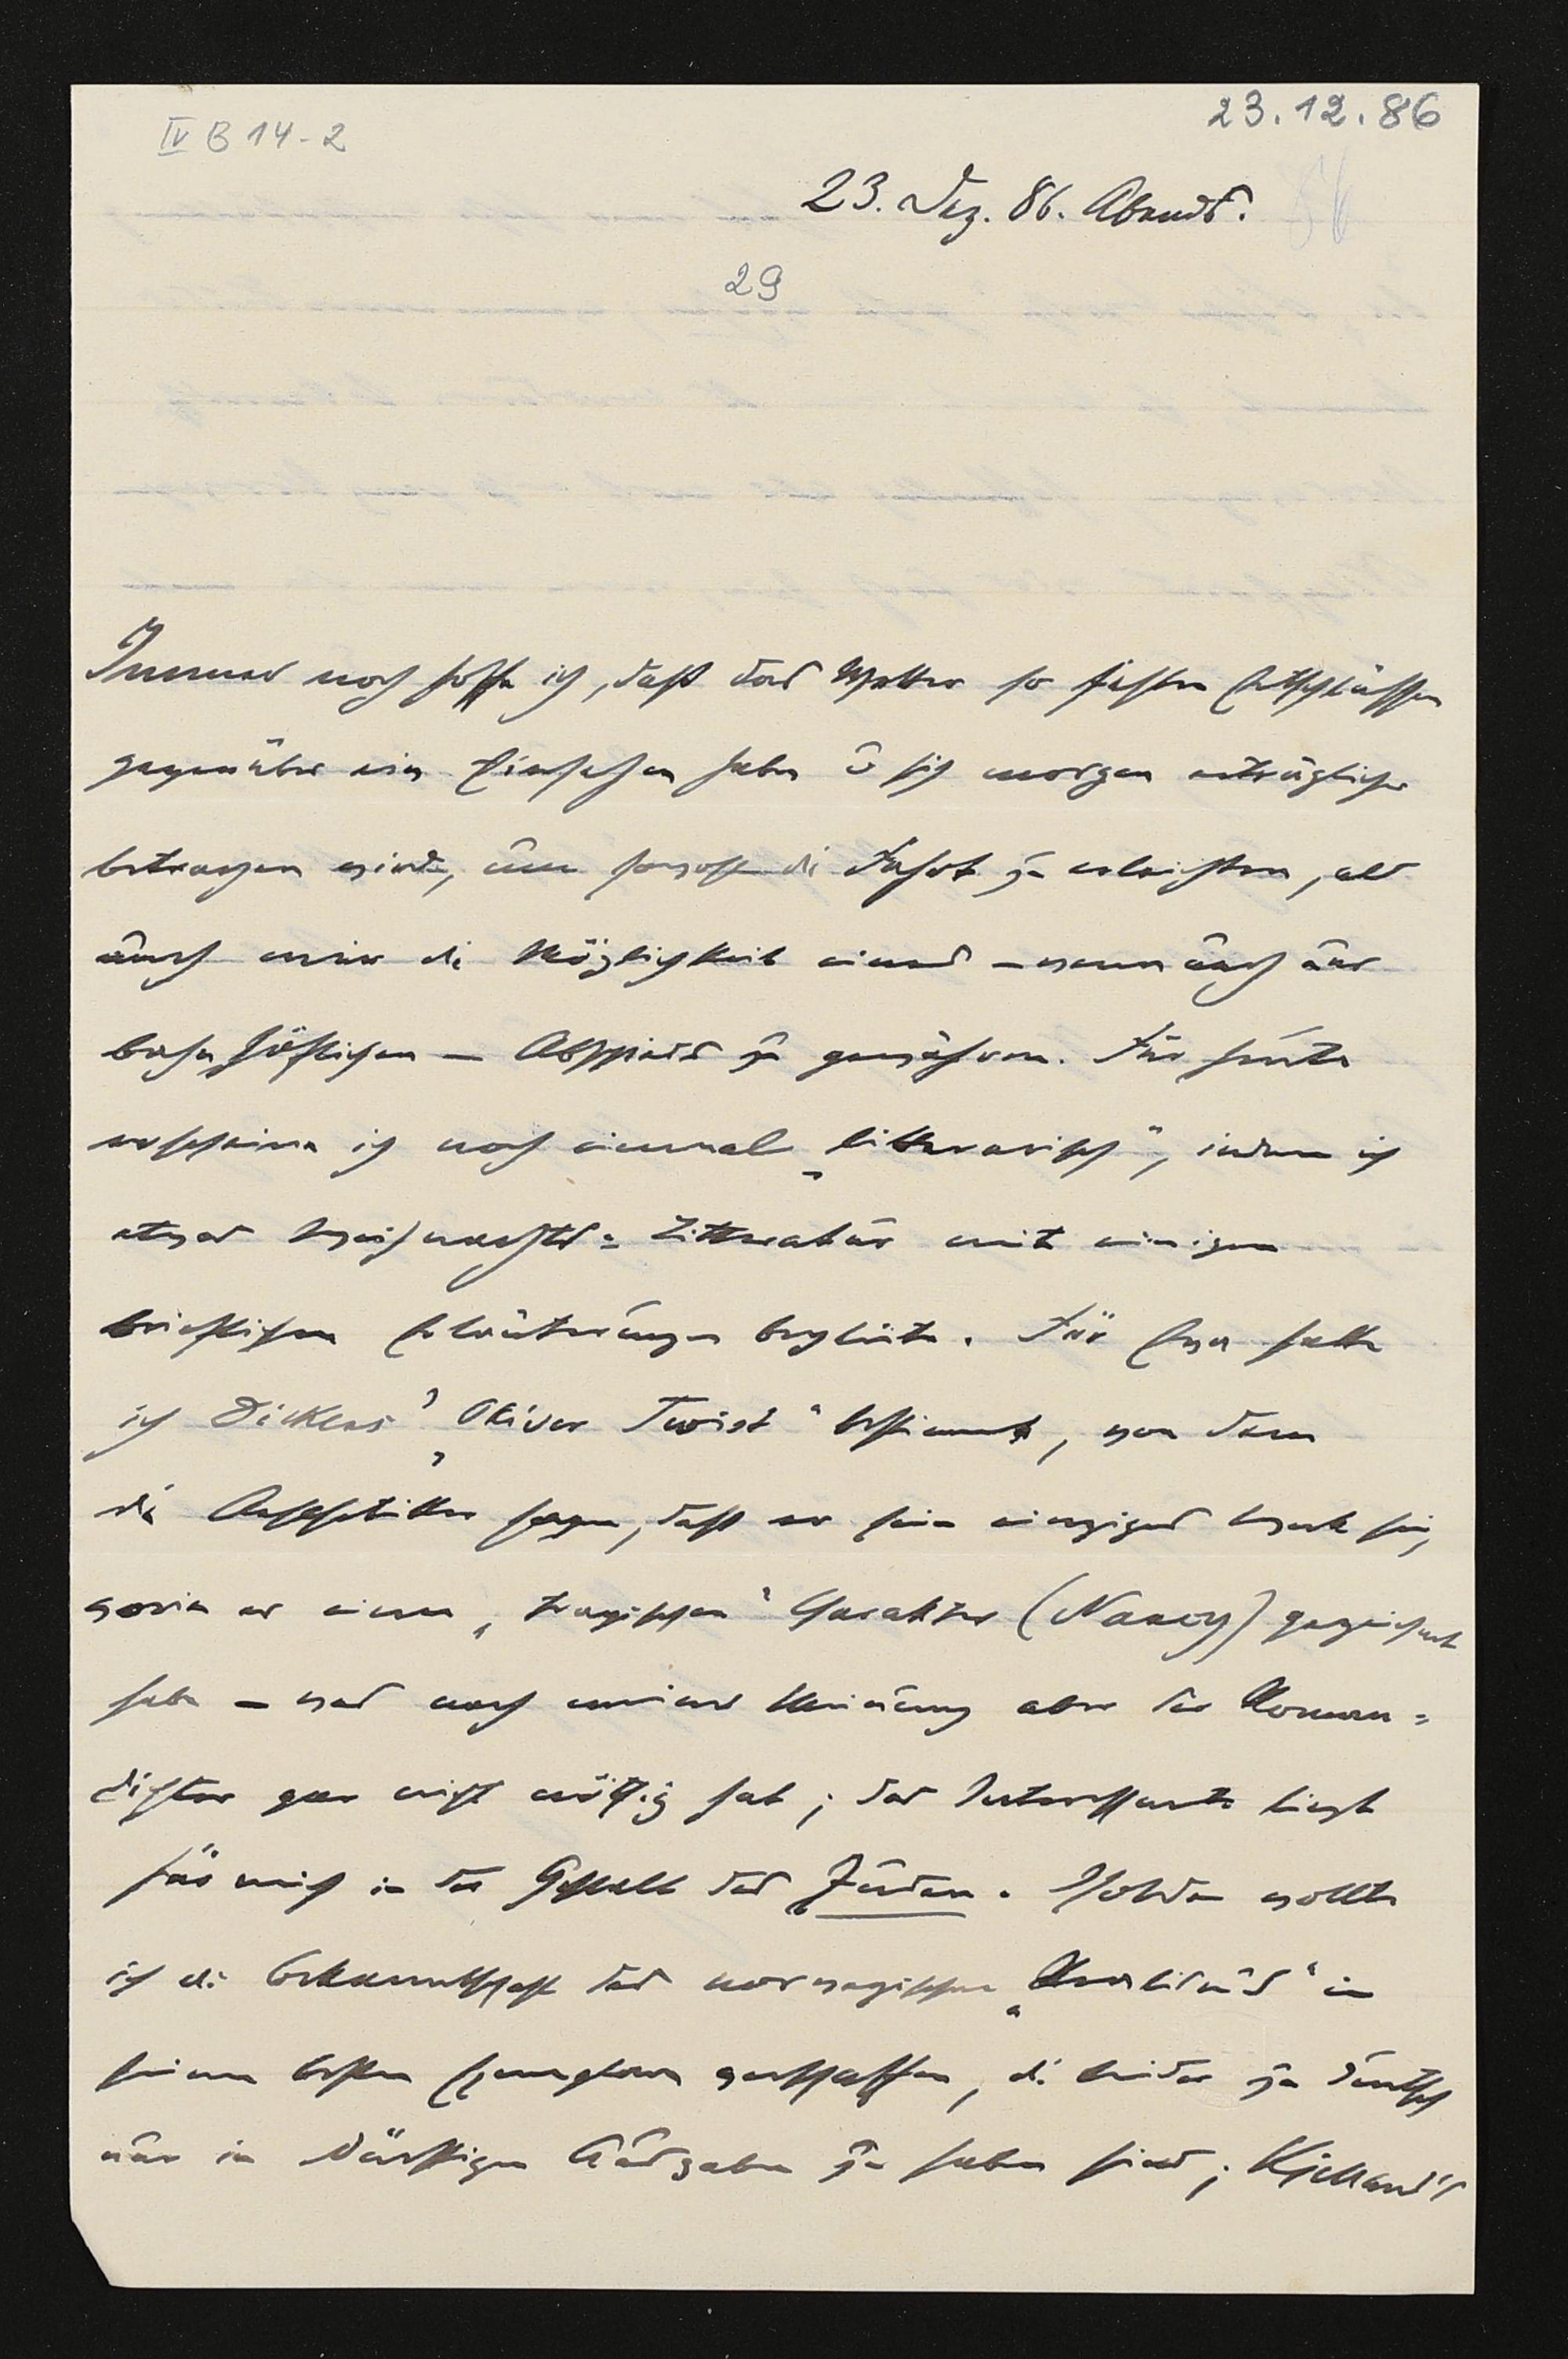 IV B 14-2
23.12.86
23. Dez. 86. Abends.
29
Immer noch hoffe ich, daß das Wetter so festen Entschlüssen
gegenüber ein Einsehen haben u sich morgen erträglicher
betragen wird, um sowohl die Fahrt zu erleichtern, als
auch mir die Möglichkeit eines – wenn auch nur
bahnhöflichen – Abschieds zu gewähren. Für heute
erscheine ich noch einmal „litterarisch", indem ich
etwas Weihnachts=Litteratur mit einigen
brieflichen Erläuterungen begleite. Für Eva hatte
ich Dickens' „Oliver Twist" bestimmt, von dem
die Aesthetiker sagen, daß er sein einziges Werk sei,
worin er einen „tragischen" Charakter (Nancy) gezeichnet
habe – was nach meiner Meinung aber der Roman=
dichter gar nicht nöthig hat; das Interessante liegt
für mich in der Gestalt des Juden. Isolden wollte
ich die Bekanntschaft des norwegischen „Realismus" in
seinen besten Exemplaren verschaffen, die leider zu deutsch
nur in dürftigen Ausgaben zu haben sind; Kjelland's